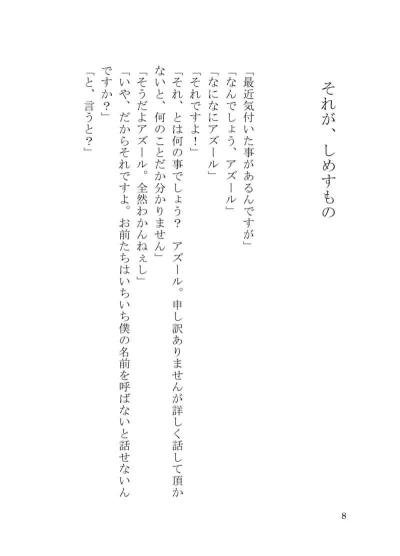 それが、しめすもの
「最近気付いた事があるんですが」
「なんでしょう、アズール」
「なになにアズール」
「それですよ！」
「それ、とは何の事でしょう？　アズール。申し訳ありませんが詳しく話して頂か
ないと、何のことだか分かりません」
「そうだよアズール。全然わかんねぇし」
「いや、だからそれですよ。お前たちはいちいち僕の名前を呼ばないと話せないん
ですか？」
「と、言うと？」
8